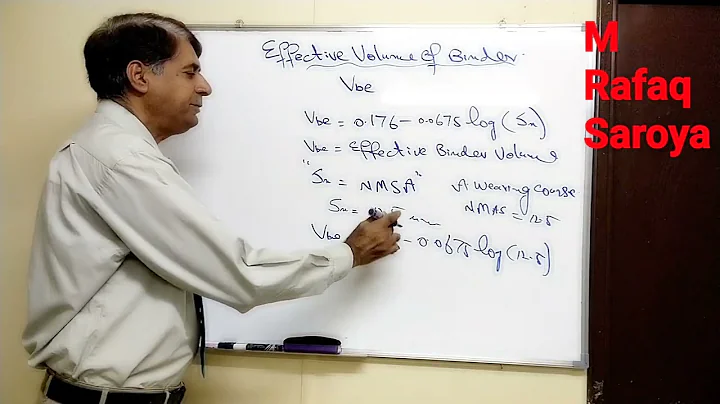 Effective Volume of Binder.
Vbe
Vbe = 0.176 - 0.0675 log (Sn)
Vbe = Effective Binder Volume
"Sn = NMSA" A wearing course
Sn = mm NMAS = 12.5
Vbe - 0.0675 log (12.5)
M
Rafaq
Saroya